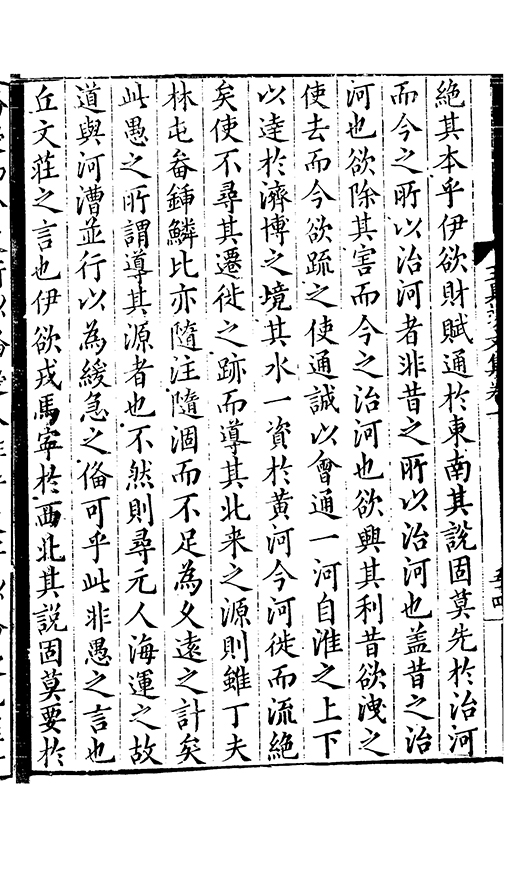 絶其本乎伊欲財賦通於東南其說固莫先於治河
而今之所以治河者非昔之所以治河也盖昔之治
河也欲除其害而今之治河也欲興其利昔欲洩之
使去而今欲疏之使通誠以會通一河自淮之上下
以達於濟博之境其水一資於黄河今河徙而流絶
矣使不尋其遷徙之跡而導其北来之源則雖丁夫
林屯畚鍤鱗比亦隨注隨涸而不足為久遠之計矣
此愚之所謂導其源者也不然則尋元人海運之故
道與河漕並行以為緩急之偹可乎此非愚之言也
丘文莊之言也伊欲戎馬寧於西北其說固莫要於